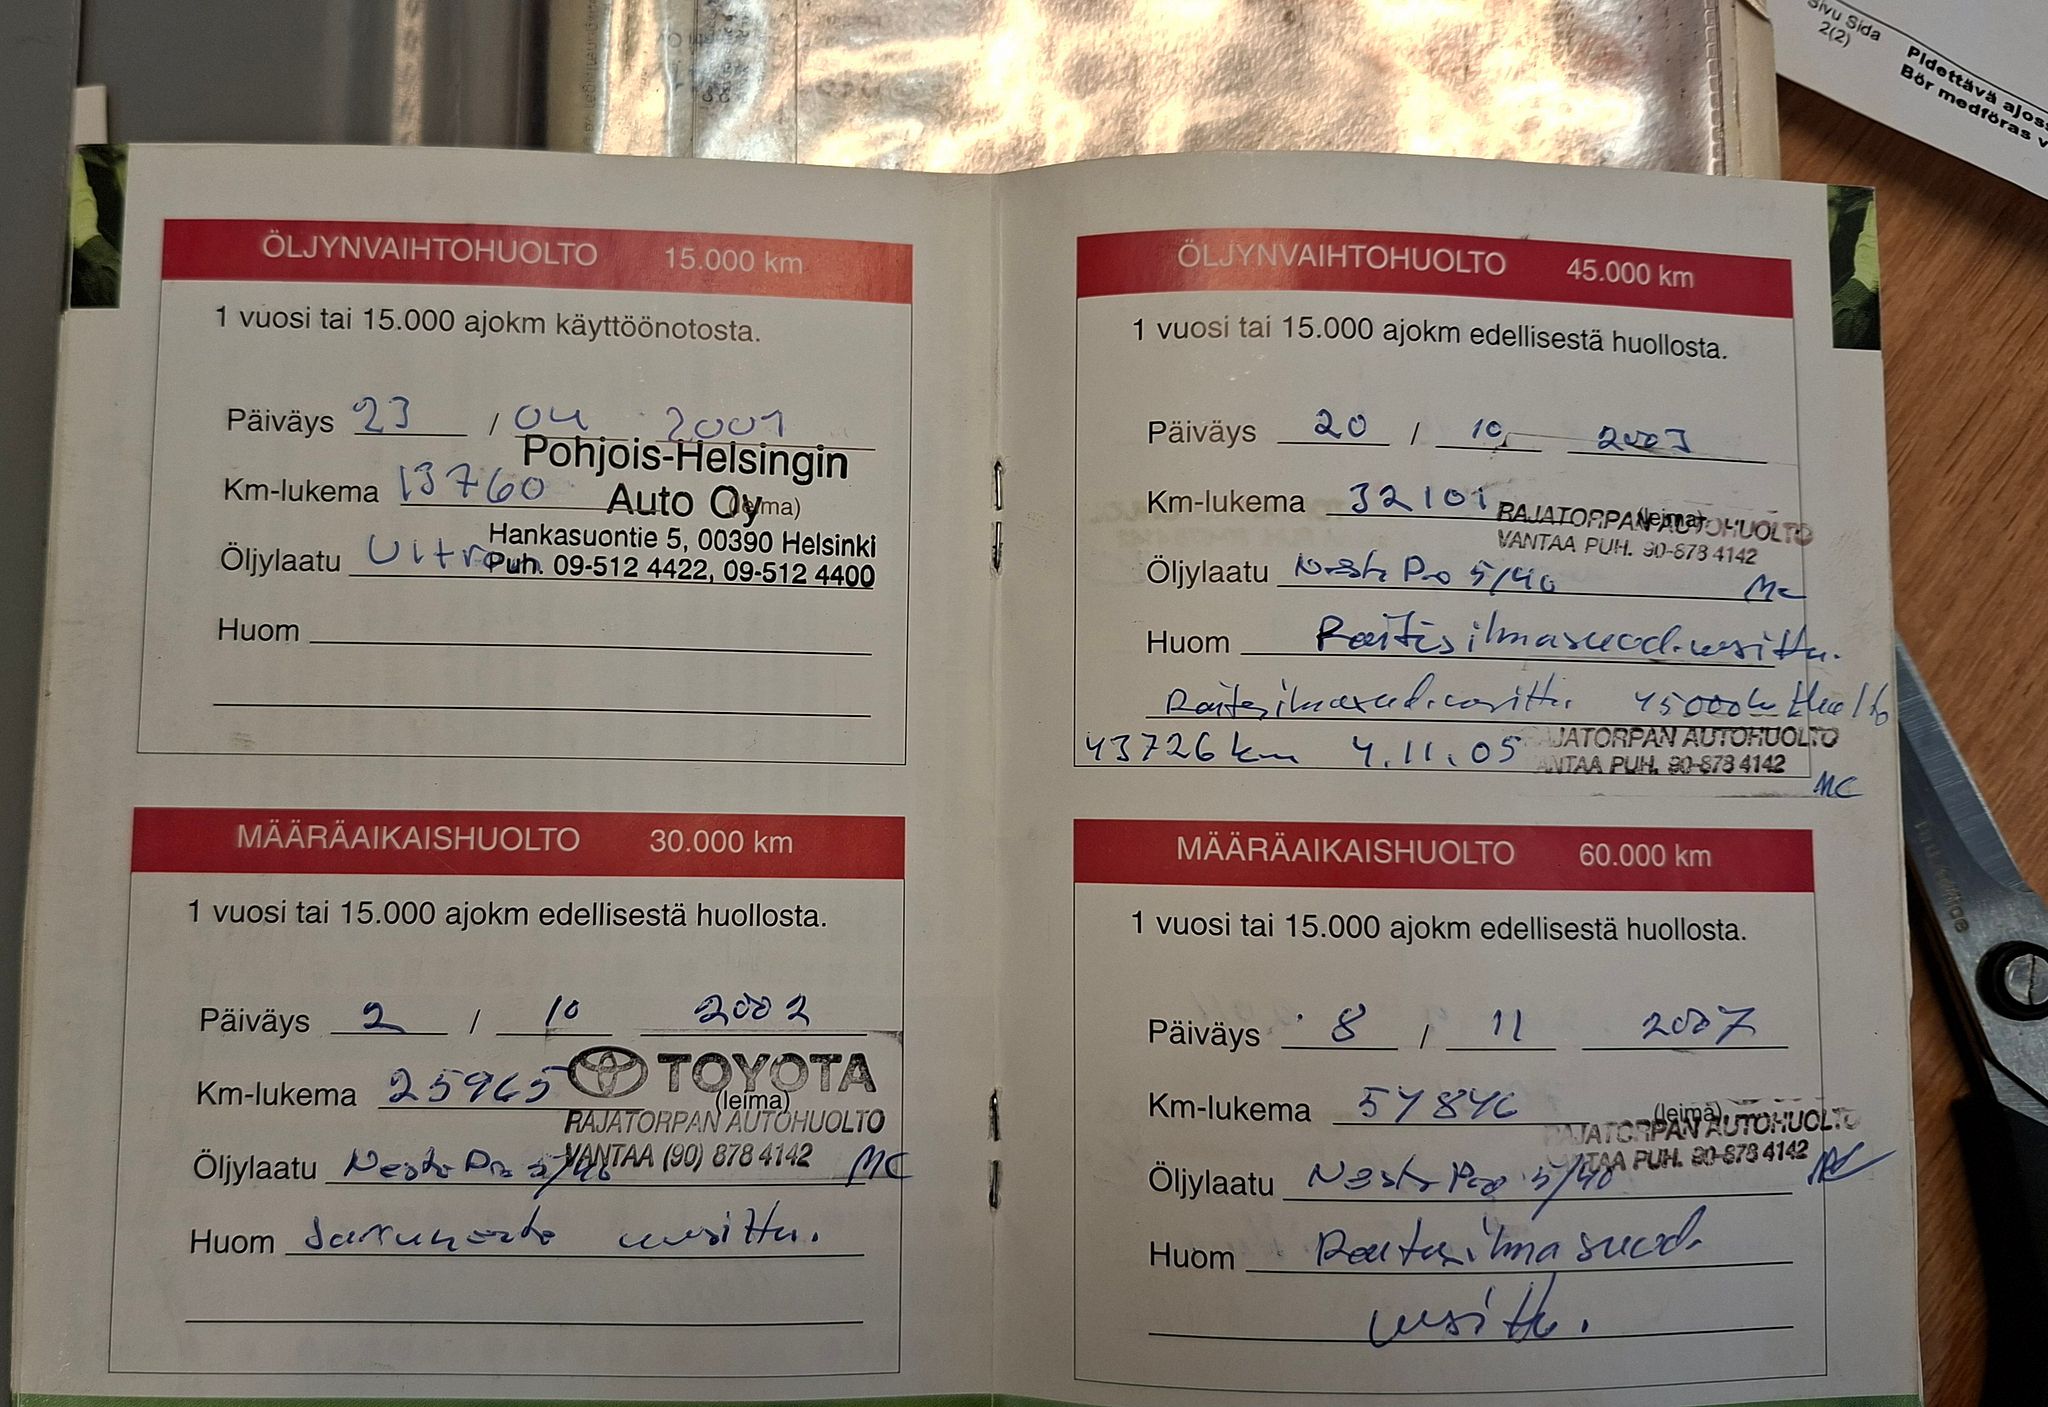 Sivu Sida
2(2)
Pidettävä ajoss
Bör medföras v
ÖLJYNVAIHTOHUOLTO 15.000 km
1 vuosi tai 15.000 ajokm käyttöönotosta.
Päiväys 23 / 04 2001
Pohjois-Helsingin
Km-lukema 13760 Auto Oy (leima)
Hankasuontie 5, 00390 Helsinki
Öljylaatu Ultron Puh. 09-512 4422, 09-512 4400
Huom
MÄÄRÄAIKAISHUOLTO 30.000 km
1 vuosi tai 15.000 ajokm edellisestä huollosta.
Päiväys 2 / 10 2002
Km-lukema 25965 TOYOTA
(leima)
RAJATORPAN AUTOHUOLTO
VANTAA (90) 878 4142
Öljylaatu Neste Pro 5/40 MC
Huom Jarruneste uusittu.
ÖLJYNVAIHTOHUOLTO 45.000 km
1 vuosi tai 15.000 ajokm edellisestä huollosta.
Päiväys 20 / 10 2003
Km-lukema 32101 (leima)
RAJATORPAN AUTOHUOLTO
VANTAA PUH. 90-878 4142
Öljylaatu Neste Pro 5/40 MC
Huom Raitisilmasuod. uusittu.
Raitisilmasuod. uusittu 45000km Huolto
43726 km 4.11.05 RAJATORPAN AUTOHUOLTO
VANTAA PUH. 90-878 4142
MC
MÄÄRÄAIKAISHUOLTO 60.000 km
1 vuosi tai 15.000 ajokm edellisestä huollosta.
Päiväys 8 / 11 2007
Km-lukema 54846 (leima)
RAJATORPAN AUTOHUOLTO
VANTAA PUH. 90-878 4142
Öljylaatu Neste Pro 5/40 MC
Huom Raitisilmasuod.
uusittu.